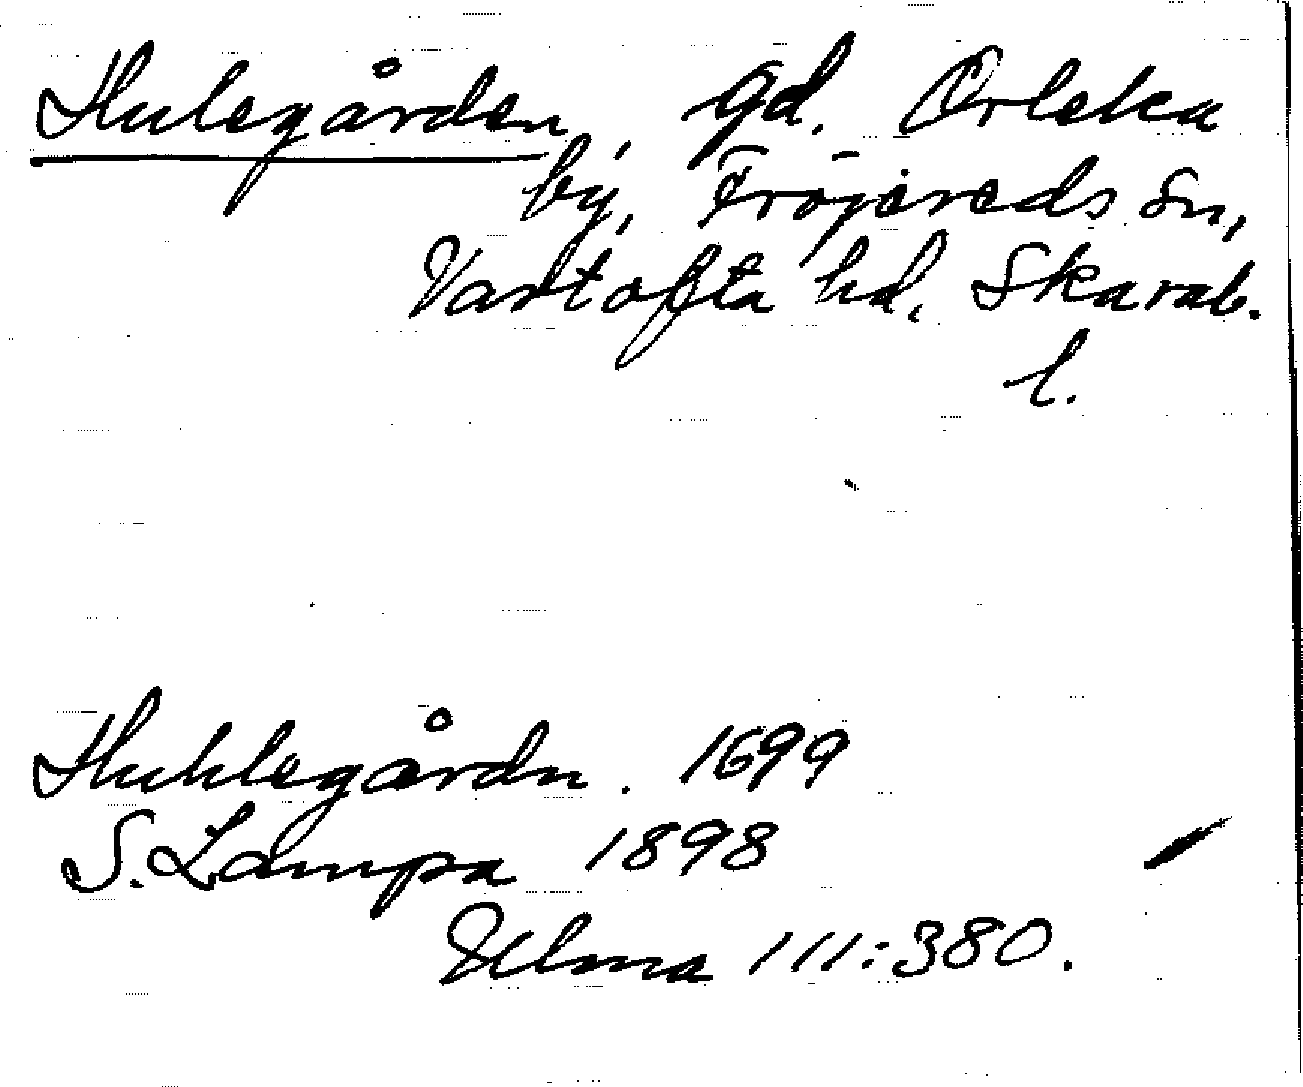 Hulegården, gd. Orleka
by, Fröjereds sn,
Vartofta hd, Skarab.
l.
Huhlegårdn. 1699
S. Lampa 1898
Ulma 111:380.